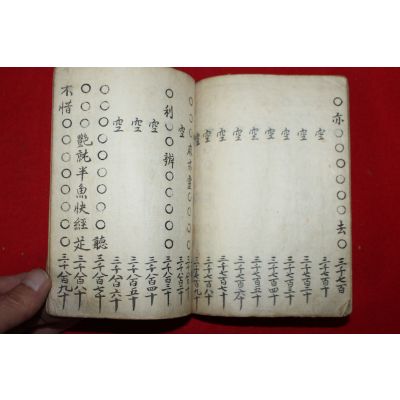 ○赤○○○○○○去○三千七百
空三千七百十
空三千七百二十
空三千七百三十
空三千七百四十
空三千七百五十
空三千七百六十
空三千七百七十
空三千七百八十
空三千七百九十
空三千八百二十
○利○○辨○○○○○三千八百三十
空三千八百四十
空三千八百五十
空三千八百六十
○○○○○○○○○聽三千八百七十
○○○艶半魚快經三千八百八十
不惜○○○○○○○○三千八百九十